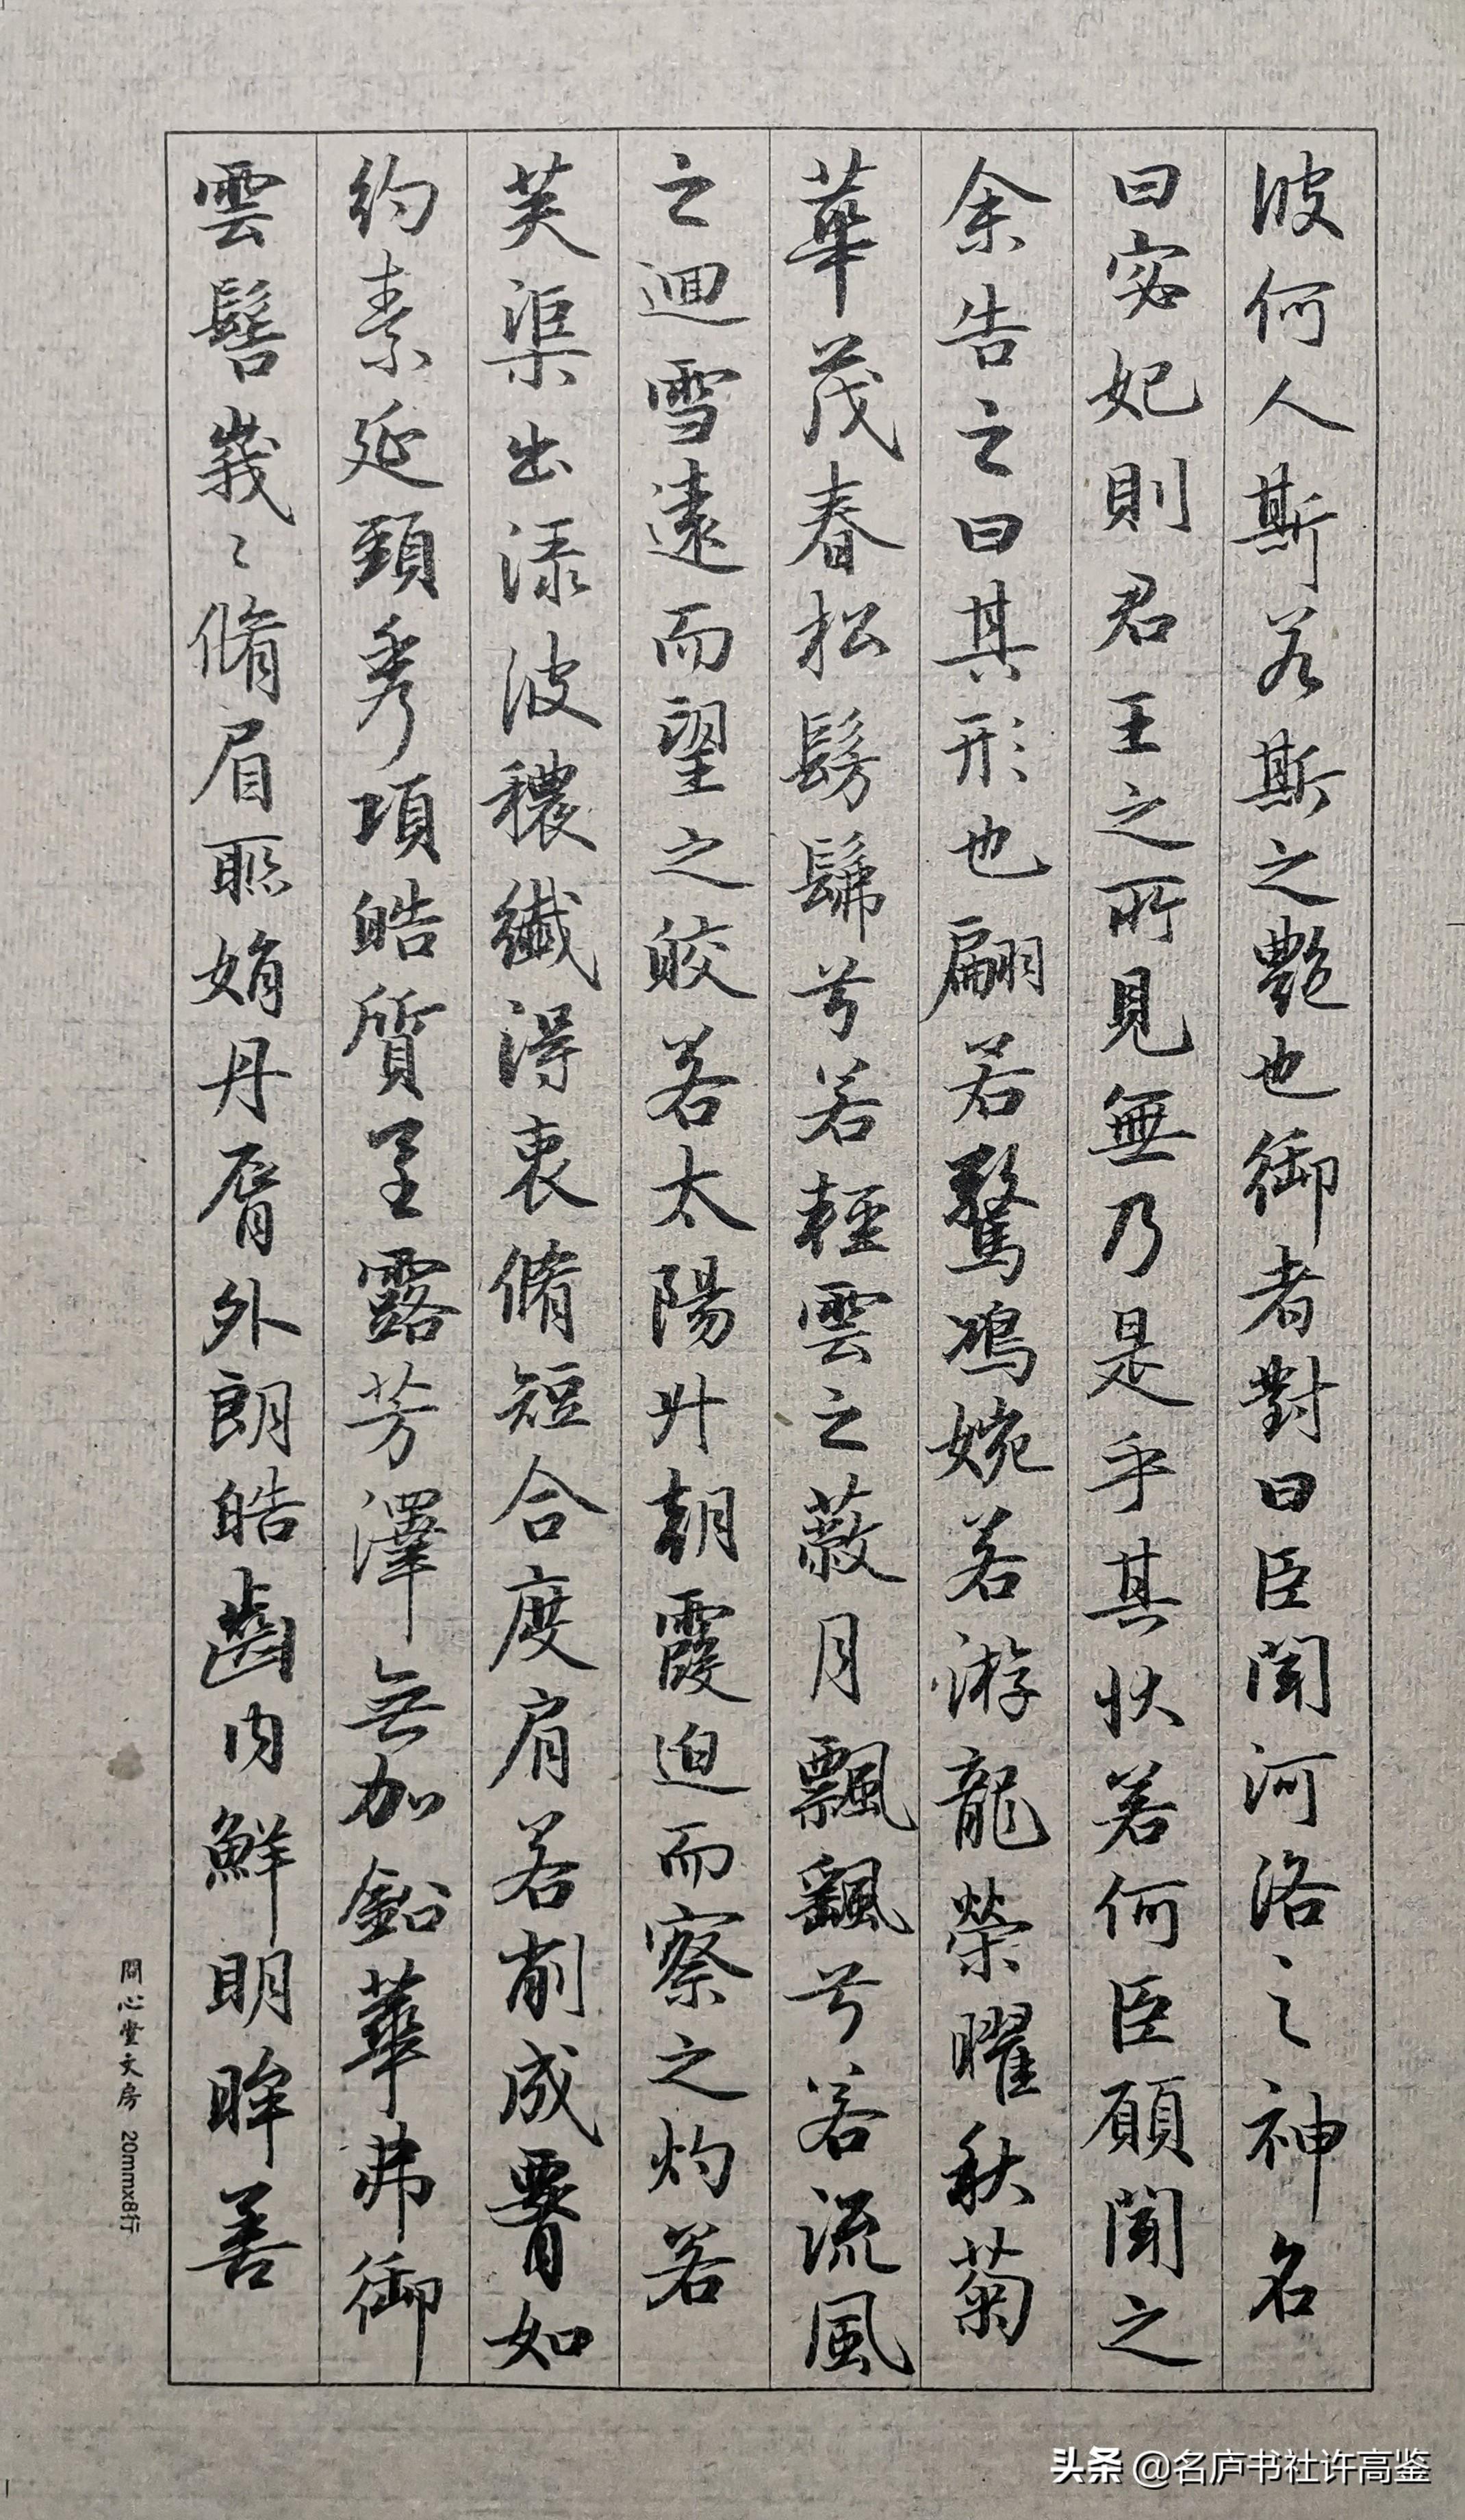 彼何人斯若斯之艷也御者對曰臣聞河洛之神名
曰宓妃則君王之所見無乃是乎其狀若何臣願聞之
余告之曰其形也翩若驚鴻婉若游龍榮曜秋菊
華茂春松髣髴兮若輕雲之蔽月飄颻兮若流風
之迴雪遠而望之皎若太陽升朝霞迫而察之灼若
芙渠出渌波穠纖得衷脩短合度肩若削成署如
約素延頸秀項皓質呈露芳澤無加鉛華弗御
雲髻峩〻脩眉聯娟丹脣外朗皓齒內鮮明眸善
問心堂文房 20mmx8行
头条 @名庐书社许高鉴